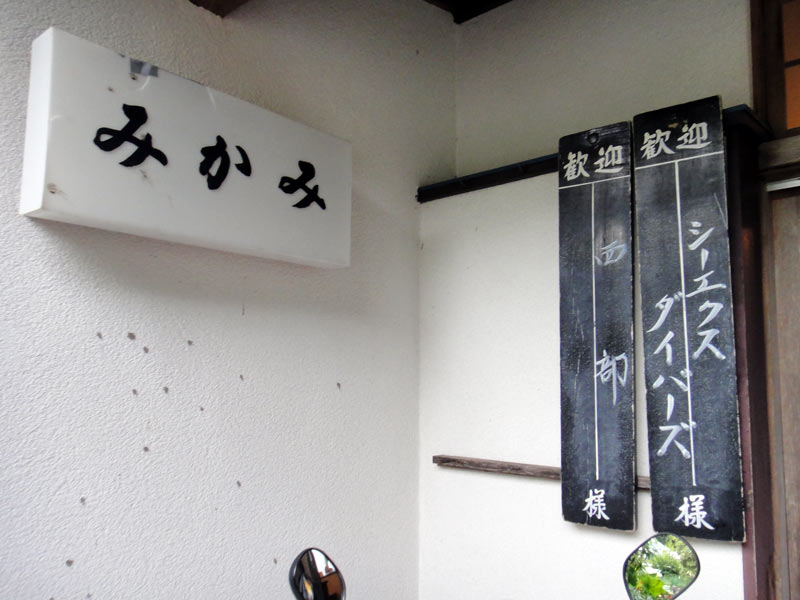 みかみ
歓迎
シーエクス
ダイバーズ
様
歓迎
西部
様